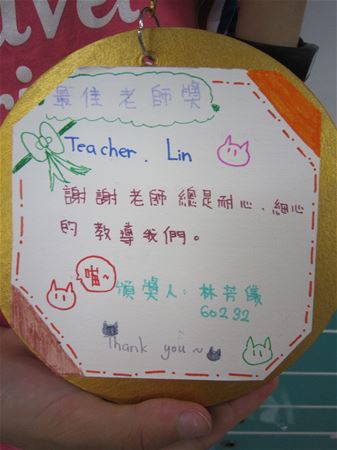 最佳老師獎
Teacher. Lin
謝謝老師總是耐心、細心
的教導我們。
喵~
頒獎人: 林芳儀
60232
Thank you~